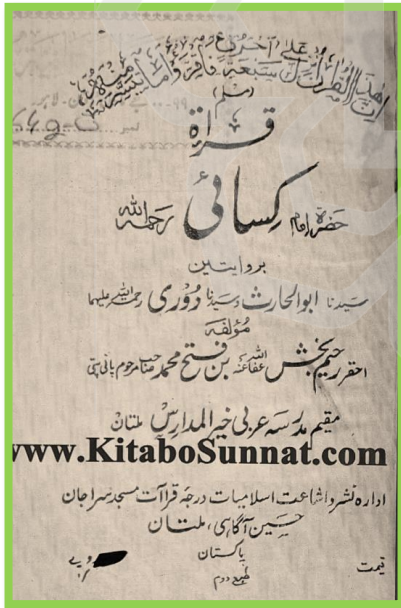 ان هذا القرآن انزل علی سبعة احرف فاقرؤا ما تیسر منه
(مسلم)
۹۹...
نمبر
قراۃ
حضرۃ امام کسائی رحمہ اللہ
بروایتین
سیدنا ابوالحارث و سیدنا دوری رحمۃ اللہ علیہما
مؤلفہ
احقر رحیم بخش عفا اللہ عنہ بن فتح محمد صاحب مرحوم پانی پتی
مقیم مدرسہ عربی خیر المدارس ملتان
www.KitaboSunnat.com
ادارہ نشر و اشاعت اسلامیات درجہ قراآت مسجد سراجان
حسین آگاہی، ملتان
پاکستان
قیمت
روپے
طبع دوم